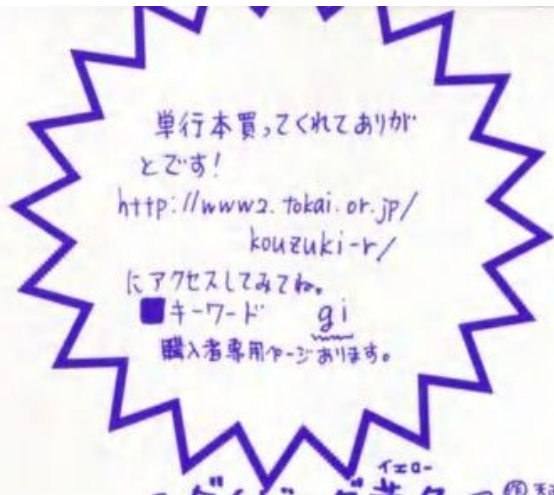 単行本買ってくれてありが
とです!
http://www2.tokai.or.jp/
kouzuki-r/
にアクセスしてみてね。
■キーワード gi
購入者専用ページあります。
イエロー